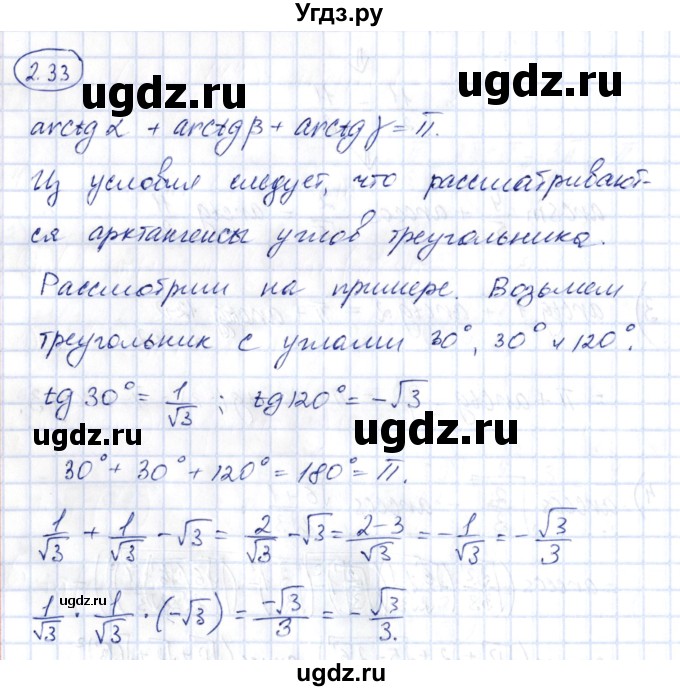 Угдз.ру
2.33
ugdz.ru ugdz.ru
arctg α + arctg β + arctg γ = π.
Из условия следует, что рассматривают-
ся арктангенсы углов треугольника.
ugdz.ru ugdz.ru
Рассмотрим на примере. Возьмем
треугольник с углами 30°, 30° и 120°.
tg 30° = 1/√3 ; tg 120° = -√3
ugdz.ru ugdz.ru
30° + 30° + 120° = 180° = π.
1/√3 + 1/√3 - √3 = 2/√3 - √3 = (2-3)/√3 = -1/√3 = -√3/3
ugdz.ru ugdz.ru
1/√3 · 1/√3 · (-√3) = -√3/3 = -√3/3.
ugdz.ru